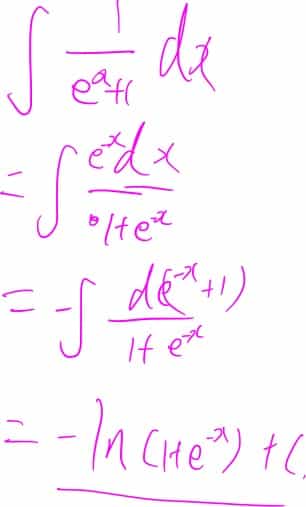 ∫ 1/(e^x+1) dx
= ∫ e^-x dx/(1+e^-x)
= -∫ d(e^-x+1)/(1+e^-x)
= -ln(1+e^-x)+C.